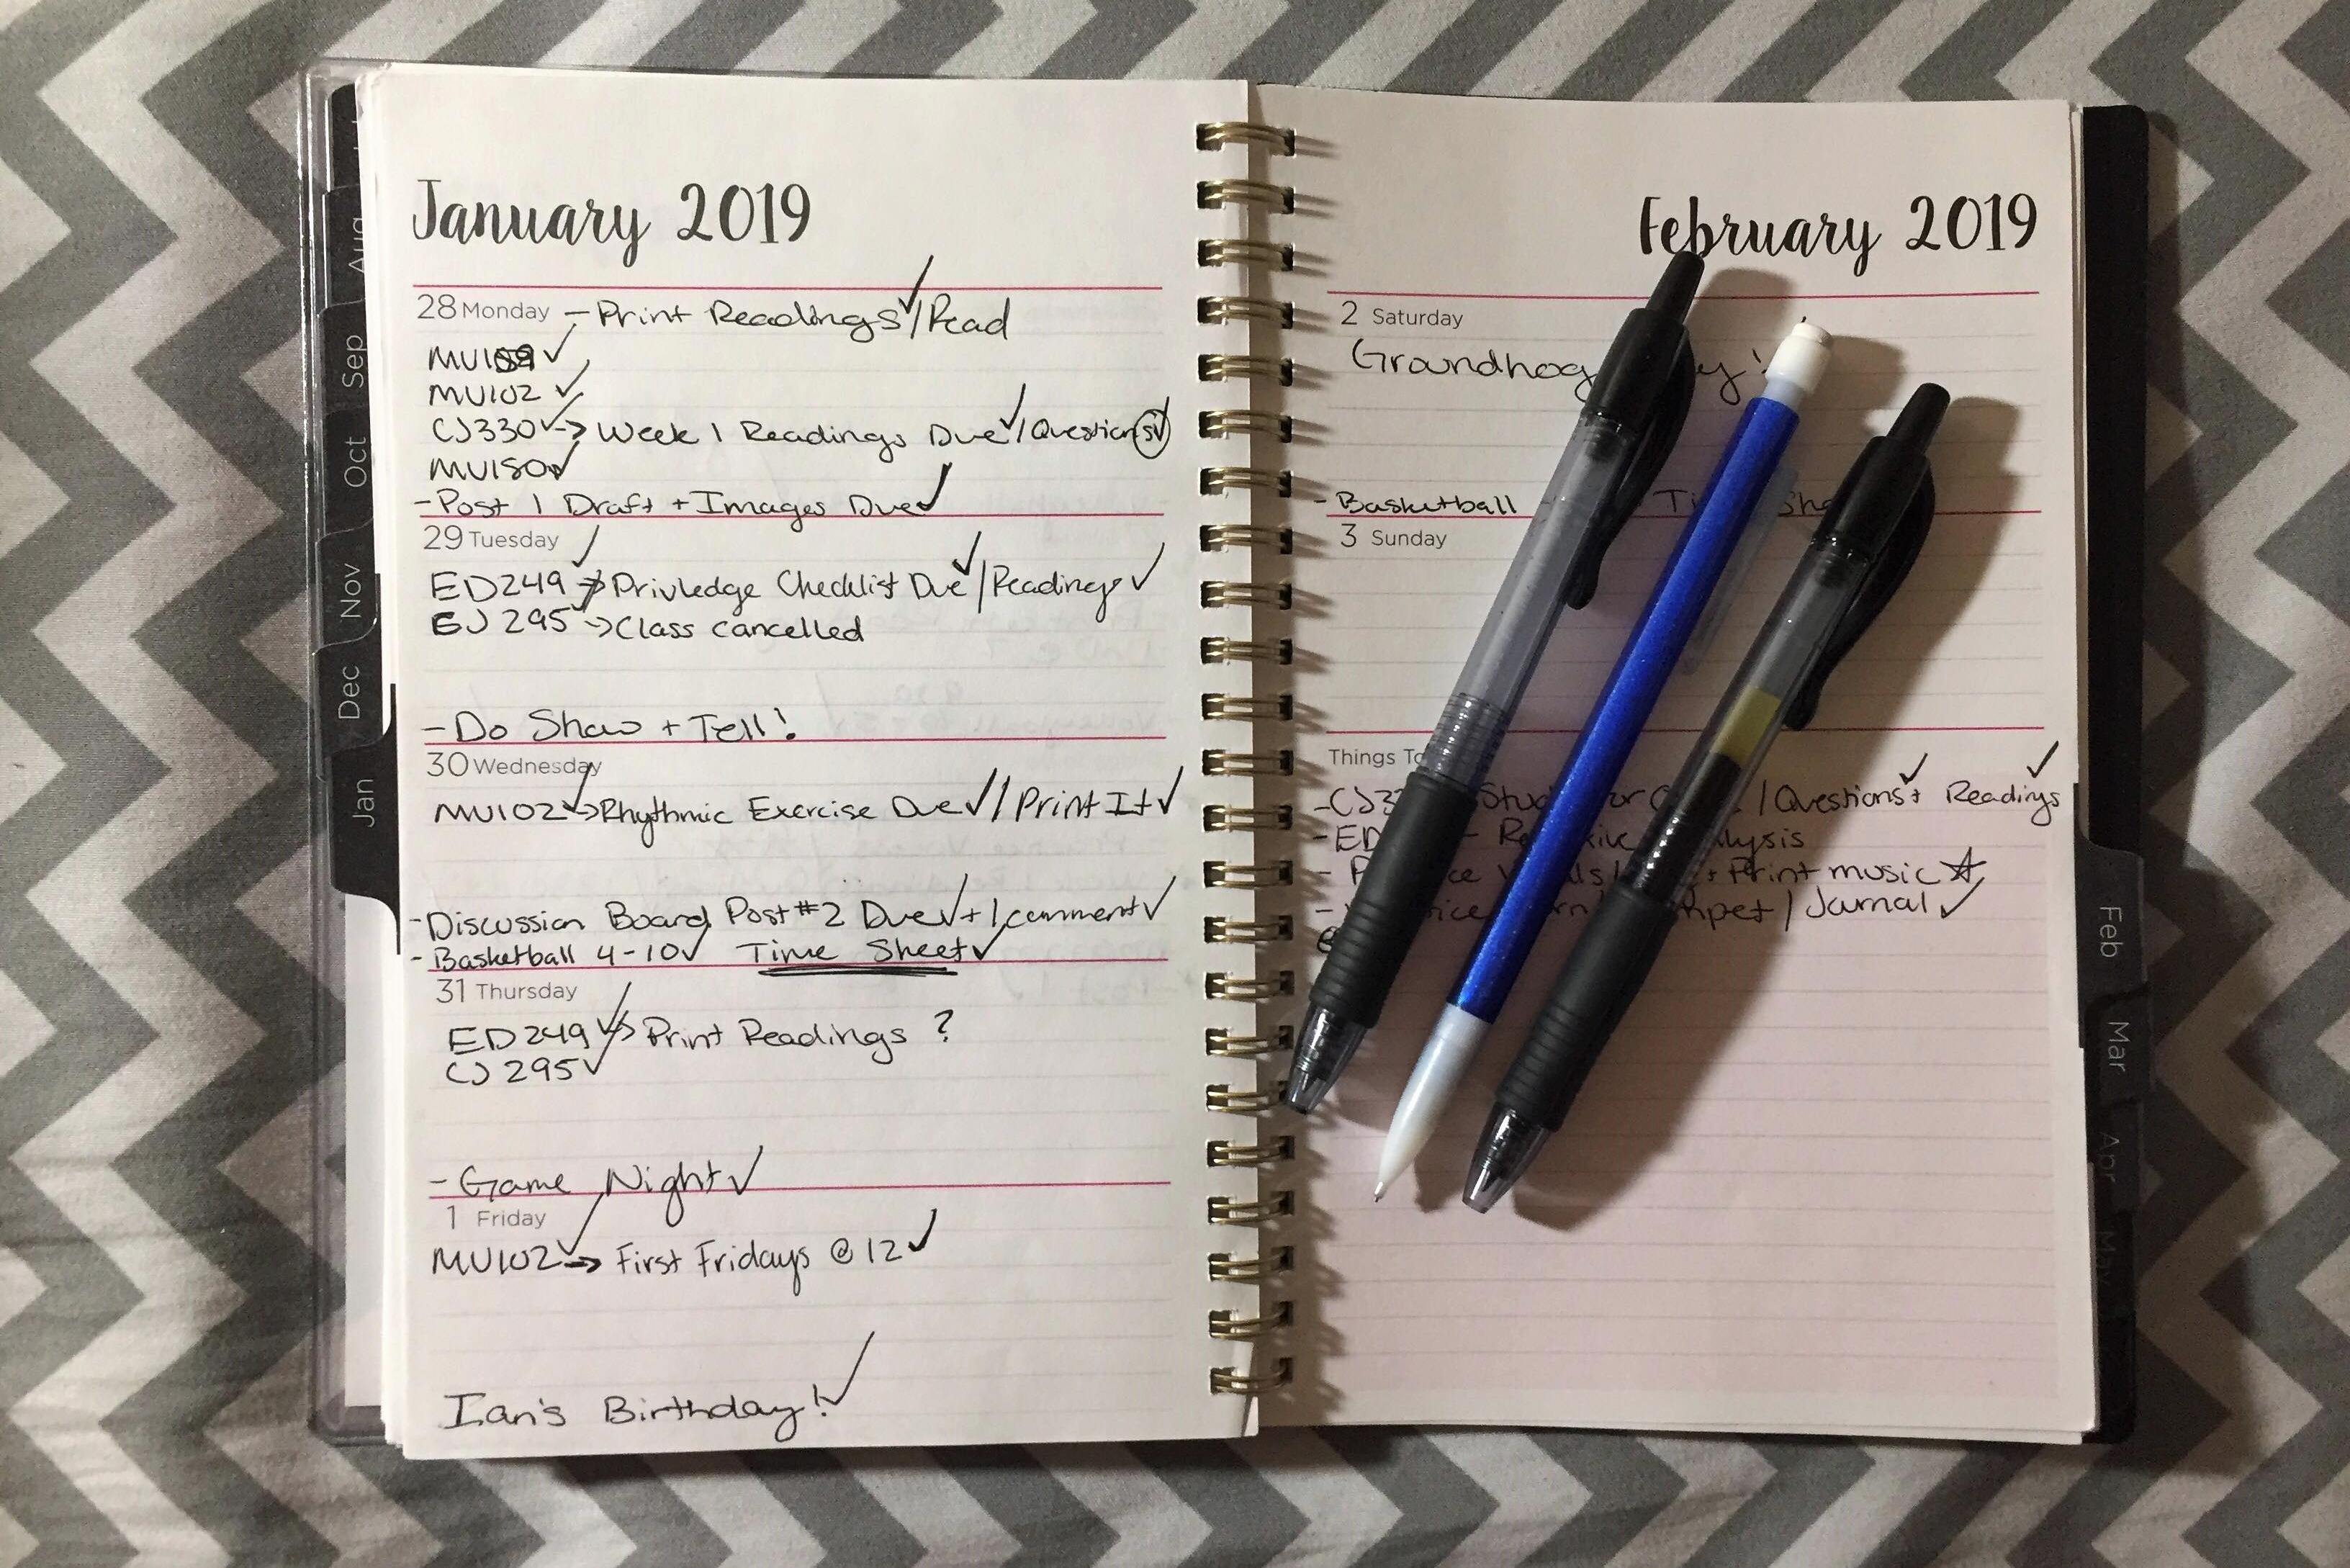 January 2019
28 Monday - Print Readings ✓/Read
✓
MU102 ✓
CJ330 ✓→ Week 1 Readings Due ✓/Questions ✓
MU180 ✓
- Post 1 Draft + Images Due ✓
29 Tuesday
ED249 ✓→ Privledge Checklist Due ✓/Readings ✓
295 → Class cancelled
- Do Show + Tell!
30 Wednesday
MU102 ✓→ Rhythmic Exercise Due ✓/Print It ✓
- Discussion Board Post #2 Due ✓ + 1 comment ✓
- Basketball 4-10 ✓ Time Sheet ✓
31 Thursday
ED249 ✓→ Print Readings ?
CJ295 ✓
- Game Night ✓
1 Friday
MU102 ✓→ First Fridays @ 12 ✓
Ian's Birthday! ✓
February 2019
2 Saturday
Groundhog
- Basketball
3 Sunday
Things
/Questions ✓+ Readings ✓
- ED
+ Print music ☆
/Journal ✓
Aug
Sep
Oct
Nov
Dec
Jan
Feb
Mar
Apr
May